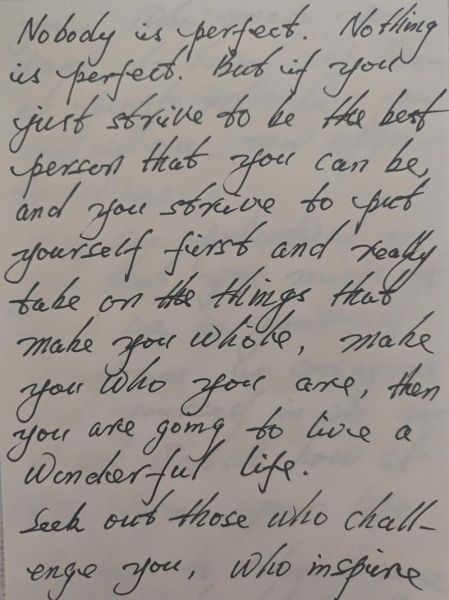 Nobody is perfect. Nothing
is perfect. But if you
just strive to be the best
person that you can be,
and you strive to put
yourself first and really
take on the things that
make you whole, make
you who you are, then
you are going to live a
wonderful life.
Seek out those who chall-
enge you, who inspire